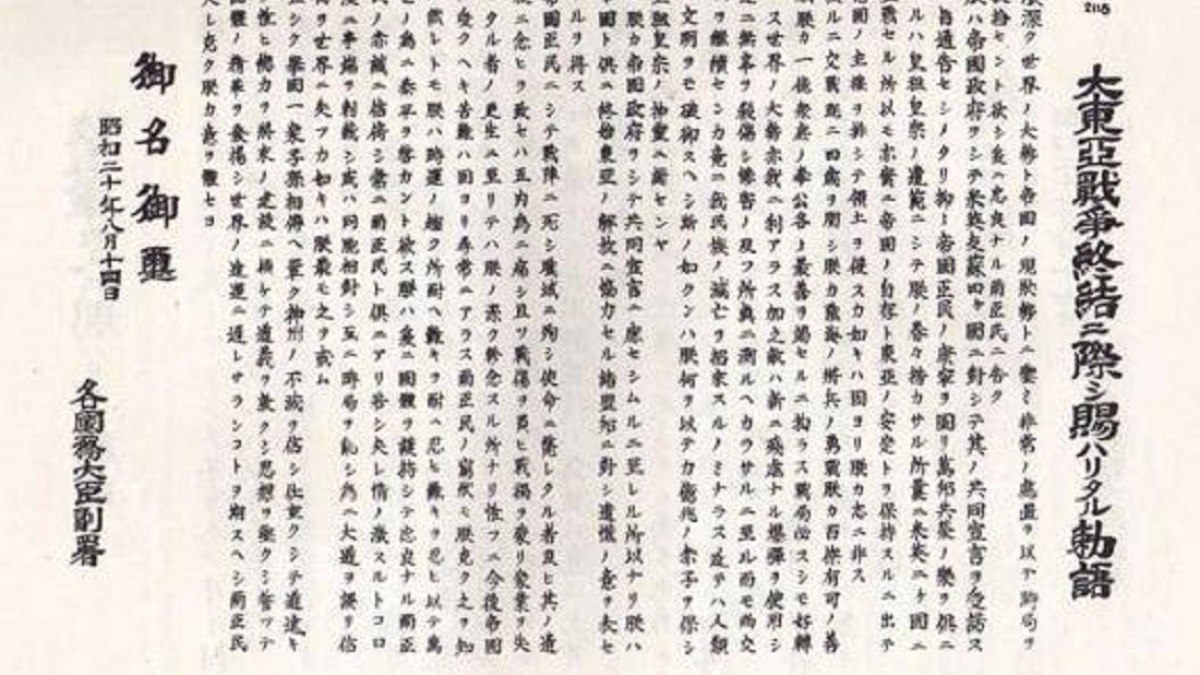 2115
大東亞戰爭終結ニ際シ賜ハリタル勅語
深ク世界ノ大勢ト帝國ノ現狀トニ鑒ミ非常ノ處置ヲ以テ時局ヲ
拾セント欲シ茲ニ忠良ナル爾臣民ニ告ク
朕ハ帝國政府ヲシテ米英支蘇四ケ國ニ對シテ其ノ共同宣言ヲ受諾ス
旨通告セシメタリ抑々帝國臣民ノ康寧ヲ圖リ萬邦共榮ノ樂ヲ倶ニ
ルハ皇祖皇宗ノ遺範ニシテ朕ノ眷々措カサル所曩ニ米英二ケ國ニ
宣戰セル所以モ亦實ニ帝國ノ自存ト東亞ノ安定トヲ保持スルニ出テ
他國ノ主權ヲ排シテ領土ヲ侵スカ如キハ固ヨリ朕カ志ニ非ス
ルニ交戰既ニ四歲ヲ閱シ朕カ陸海ノ將兵ノ勇戰朕カ百僚有司ノ善
朕カ一億衆庶ノ奉公各々最善ヲ竭セルニ拘ラス戰局必スシモ好轉
ス世界ノ大勢亦我ニ利アラス加之敵ハ新ニ殘虐ナル爆彈ヲ使用シ
ニ無辜ヲ殺傷シ慘害ノ及フ所眞ニ測ルヘカラサルニ至ル而モ尚交
ヲ繼續センカ竟ニ我民族ノ滅亡ヲ招來スルノミナラス延テハ人類
文明ヲモ破却スヘシ斯ノ如クンハ朕何ヲ以テカ億兆ノ赤子ヲ保シ
皇祖皇宗ノ神靈ニ謝センヤ
朕カ帝國政府ヲシテ共同宣言ニ應セシムルニ至レル所以ナリ朕ハ
帝國ト倶ニ終始東亞ノ解放ニ協力セル諸盟邦ニ對シ遺憾ノ意ヲ表セ
ルヲ得ス
帝國臣民ニシテ戰陣ニ死シ職域ニ殉シ使命ニ斃レタル者及ヒ其ノ遺
ニ念ヒヲ致セハ五内為ニ痛シ且ツ戰傷ヲ負ヒ戰禍ヲ蒙リ家業ヲ失
タル者ノ更生ニ至リテハ朕ノ深ク軫念スル所ナリ惟フニ今後帝國
受クヘキ苦難ハ固ヨリ尋常ニアラス爾臣民ノ衷情モ朕克ク之ヲ知
然レトモ朕ハ時運ノ趨ク所耐ヘ難キヲ耐ヘ忍ヒ難キヲ忍ヒ以テ萬
世ノ為ニ泰平ヲ啓カント欲ス朕ハ茲ニ國體ヲ護持シテ忠良ナル爾臣
民ノ赤誠ニ信倚シ常ニ爾臣民ト倶ニアリ若シ夫レ情ノ激スルトコロ
ニ事端ヲ滋クシ或ハ同胞相對シ互ニ時局ヲ亂シ為ニ大道ヲ謬リ信
ヲ世界ニ失フカ如キハ朕最モ之ヲ戒ム
シク擧國一家子孫相傳ヘ確ク神州ノ不滅ヲ信シ任重クシテ道遠キ
念ヒ總力ヲ將來ノ建設ニ傾ケテ道義ヲ篤クシ志想ヲ鞏クシ誓ツテ
國體ノ精華ヲ發揚シ世界ノ進運ニ遅レサランコトヲ期スヘシ爾臣民
夫レ克ク朕カ意ヲ體セヨ
御名御璽
昭和二十年八月十四日
各國務大臣副署